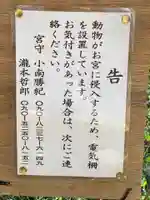 告
動物がお宮に侵入するため、電気柵
を設置しています。
お気付きがあった場合は、次にご連
絡ください。
宮守 小南勝紀 〇九〇-八二三七-六一四九
瀧本哲郎 〇九〇-五二五〇-八一五一